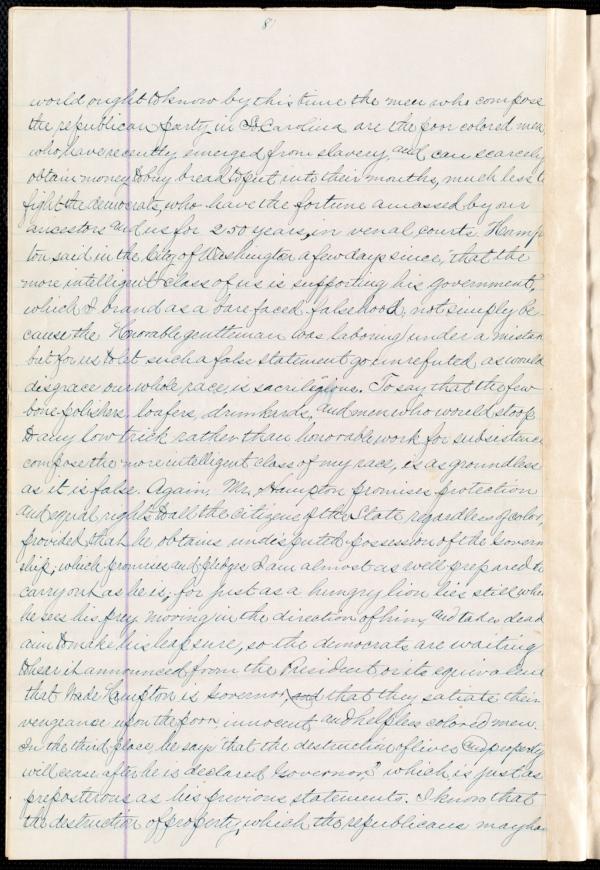 8
world ought to know by this time the men who compose
the republican party in So Carolina are the poor colored men
who have recently emerged from slavery, and can scarcely
obtain money to buy bread to put into their mouths, much less to
fight the democrats, who have the fortune amassed by our
ancestors and us for 250 years, in venal courts. Hamp
ton said in the City of Washington a few days since, "that the
more intelligent class of us is supporting his government,
which I brand as a bare faced falsehood, not simply be
cause the Honorable gentleman was laboring under a mistak
but for us to let such a false statement go unrefuted as would
disgrace our whole race, is sacriligious. To say that the few
bone polishers, loafers, drunkards, and men who would stoop
to any low trick rather than honorable work for subsistence
compose the more intelligent class of my race, is as groundless
as it is false. Again, Mr. Hampton promises protection
and equal rights to all the citizens of the State regardless of color,
provided that he obtains undisputed possession of the Govern
ship, which promises and pledges I am almost as well prepared to
carry out as he is, for just as a hungry lion lies still when
he sees his prey moving in the direction of him, and takes dead
aim to make his leap sure, so the democrats are waiting
to hear it announced from the President or its equivalent
that Wade Hampton is Governor, and that they satiate their
vengeance upon the poor, innocent and helpless colored men.
In the third place, he says "that the destruction of lives and property
will cease after he is declared Governor" which is just as
preposterous as his previous statements. I know that
the destruction of property, which the republicans may ha